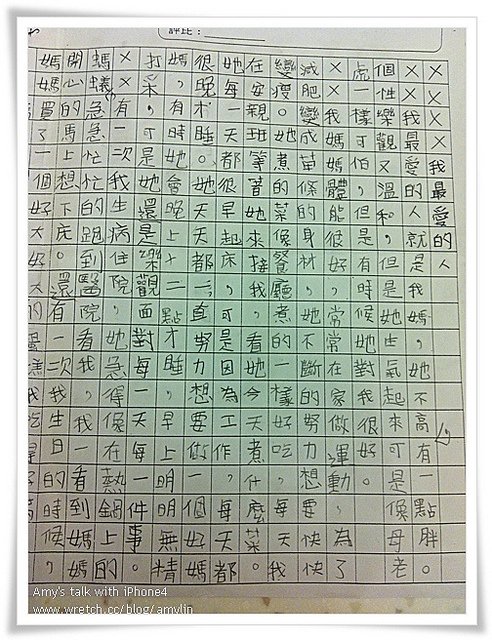 ××××我最愛的人
××我最愛的人就是我媽媽，她不高有一點胖。
個性樂觀又溫和，但是她生氣起來可是像母老
虎一樣可怕，但是有時候她對我很好。
××我媽媽體能很好，常常在家做運動，為了
減肥變成苗條的身材，她不斷的努力想要快快
變瘦。她煮的菜像餐廳煮的一樣好吃，每天我
在安親班等著她來接我，看她今天煮什麼菜。
她每天都很早起床，可是因為工作，每天都
很晚才睡。她天天都一直努力想要做一個好媽
媽，有時她會晚上十二點才睡，早上明明無精
打采，可是她還是樂觀面對每一天每一件事。
××有一次我生病住院，她急得像在熱鍋上的
螞蟻急急忙忙的跑到醫院看我，我一看到媽媽
開心的馬上想下床。還有一次我生日的時候，
媽媽買了一個好大好大的蛋糕我吃
Amy's talk with iPhone4
www.wretch.cc/blog/amylin